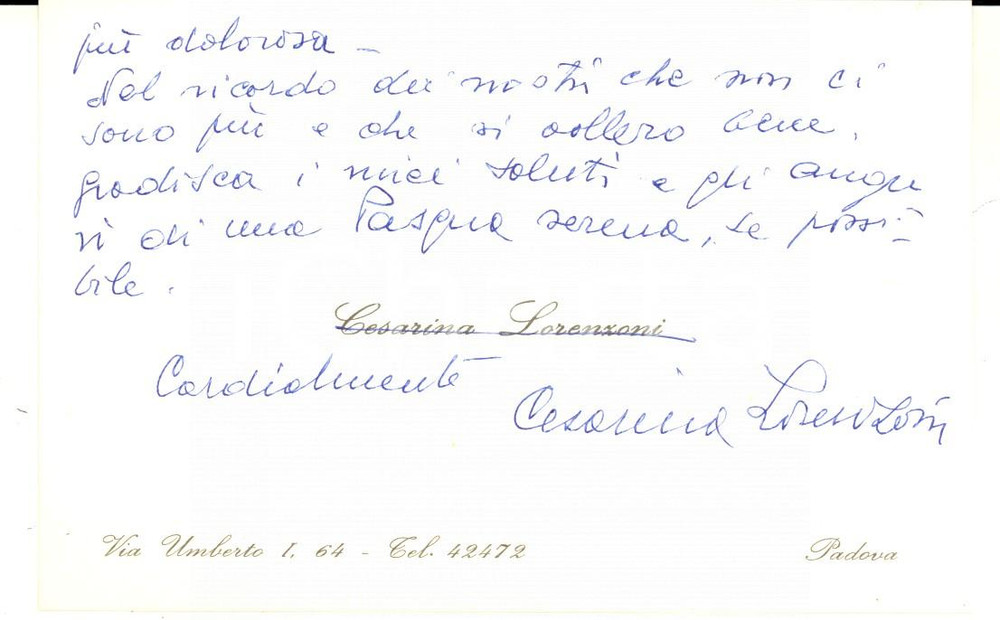 più dolorosa -
Nel ricordo dei nostri che non ci
sono più e che si vollero bene,
gradisca i miei saluti e gli augu
ri di una Pasqua serena, se possi-
bile.
Cesarina Lorenzoni
Cordialmente
Cesarina Lorenzoni
Via Umberto I, 64 - Tel. 42472
Padova